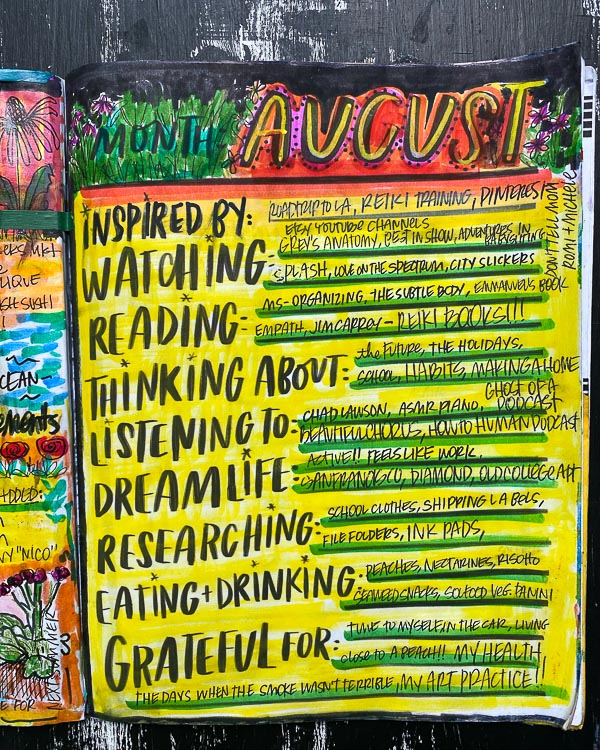 MONTH AUGUST
INSPIRED BY: ROADTRIP TO LA, REIKI TRAINING, PINTEREST
ETSY YOUTUBE CHANNELS
WATCHING: GREY'S ANATOMY, BEST IN SHOW, ADVENTURES IN BABYSITTING
SPLASH, LOVE ON THE SPECTRUM, CITY SLICKERS
DON'T TELL MOM
ROMI + MICHELE
READING: MS-ORGANIZING, THE SUBTLE BODY, EMMANUEL'S BOOK
EMPATH, JIM CARREY - REIKI BOOKS!!!
THINKING ABOUT: the FUTURE, THE HOLIDAYS,
SCHOOL, HABITS, MAKING A HOME
LISTENING TO: CHAD LAWSON, ASMR PIANO, GHOST OF A PODCAST
BEAUTIFUL CHORUS, HOW TO HUMAN PODCAST
DREAM LIFE: ACTIVE!! FEELS LIKE WORK,
SAN FRANCISCO, DIAMOND, OLD COLLEGE APT
RESEARCHING: SCHOOL CLOTHES, SHIPPING LABELS,
FILE FOLDERS, INK PADS,
EATING + DRINKING: PEACHES, NECTARINES, RISOTTO
SEAWEED SNACKS, SOLFOOD VEG
GRATEFUL FOR: TIME TO MYSELF IN THE CAR, LIVING
CLOSE TO A BEACH!! MY HEALTH,
THE DAYS WHEN THE SMOKE WASN'T TERRIBLE, MY ART PRACTICE!!
MKT
SUSHI
OCEAN
ADDED:
"NICO"
FOR